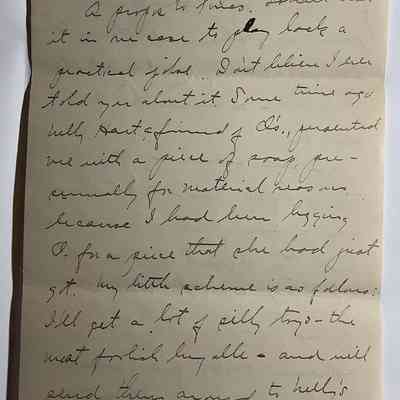 A propos to
it in me case to play back a
practical joke. Don't believe I ever
told you about it. Some time ago
Nelly Hart, a friend of O's., presented
me with a piece of soap, pre-
sumably for material reasons
because I had been begging
O. for a piece that she had just
got. My little scheme is as follows:
I'll get a lot of silly toys - the
most foolish buyable - and will
send them around to Nelly's